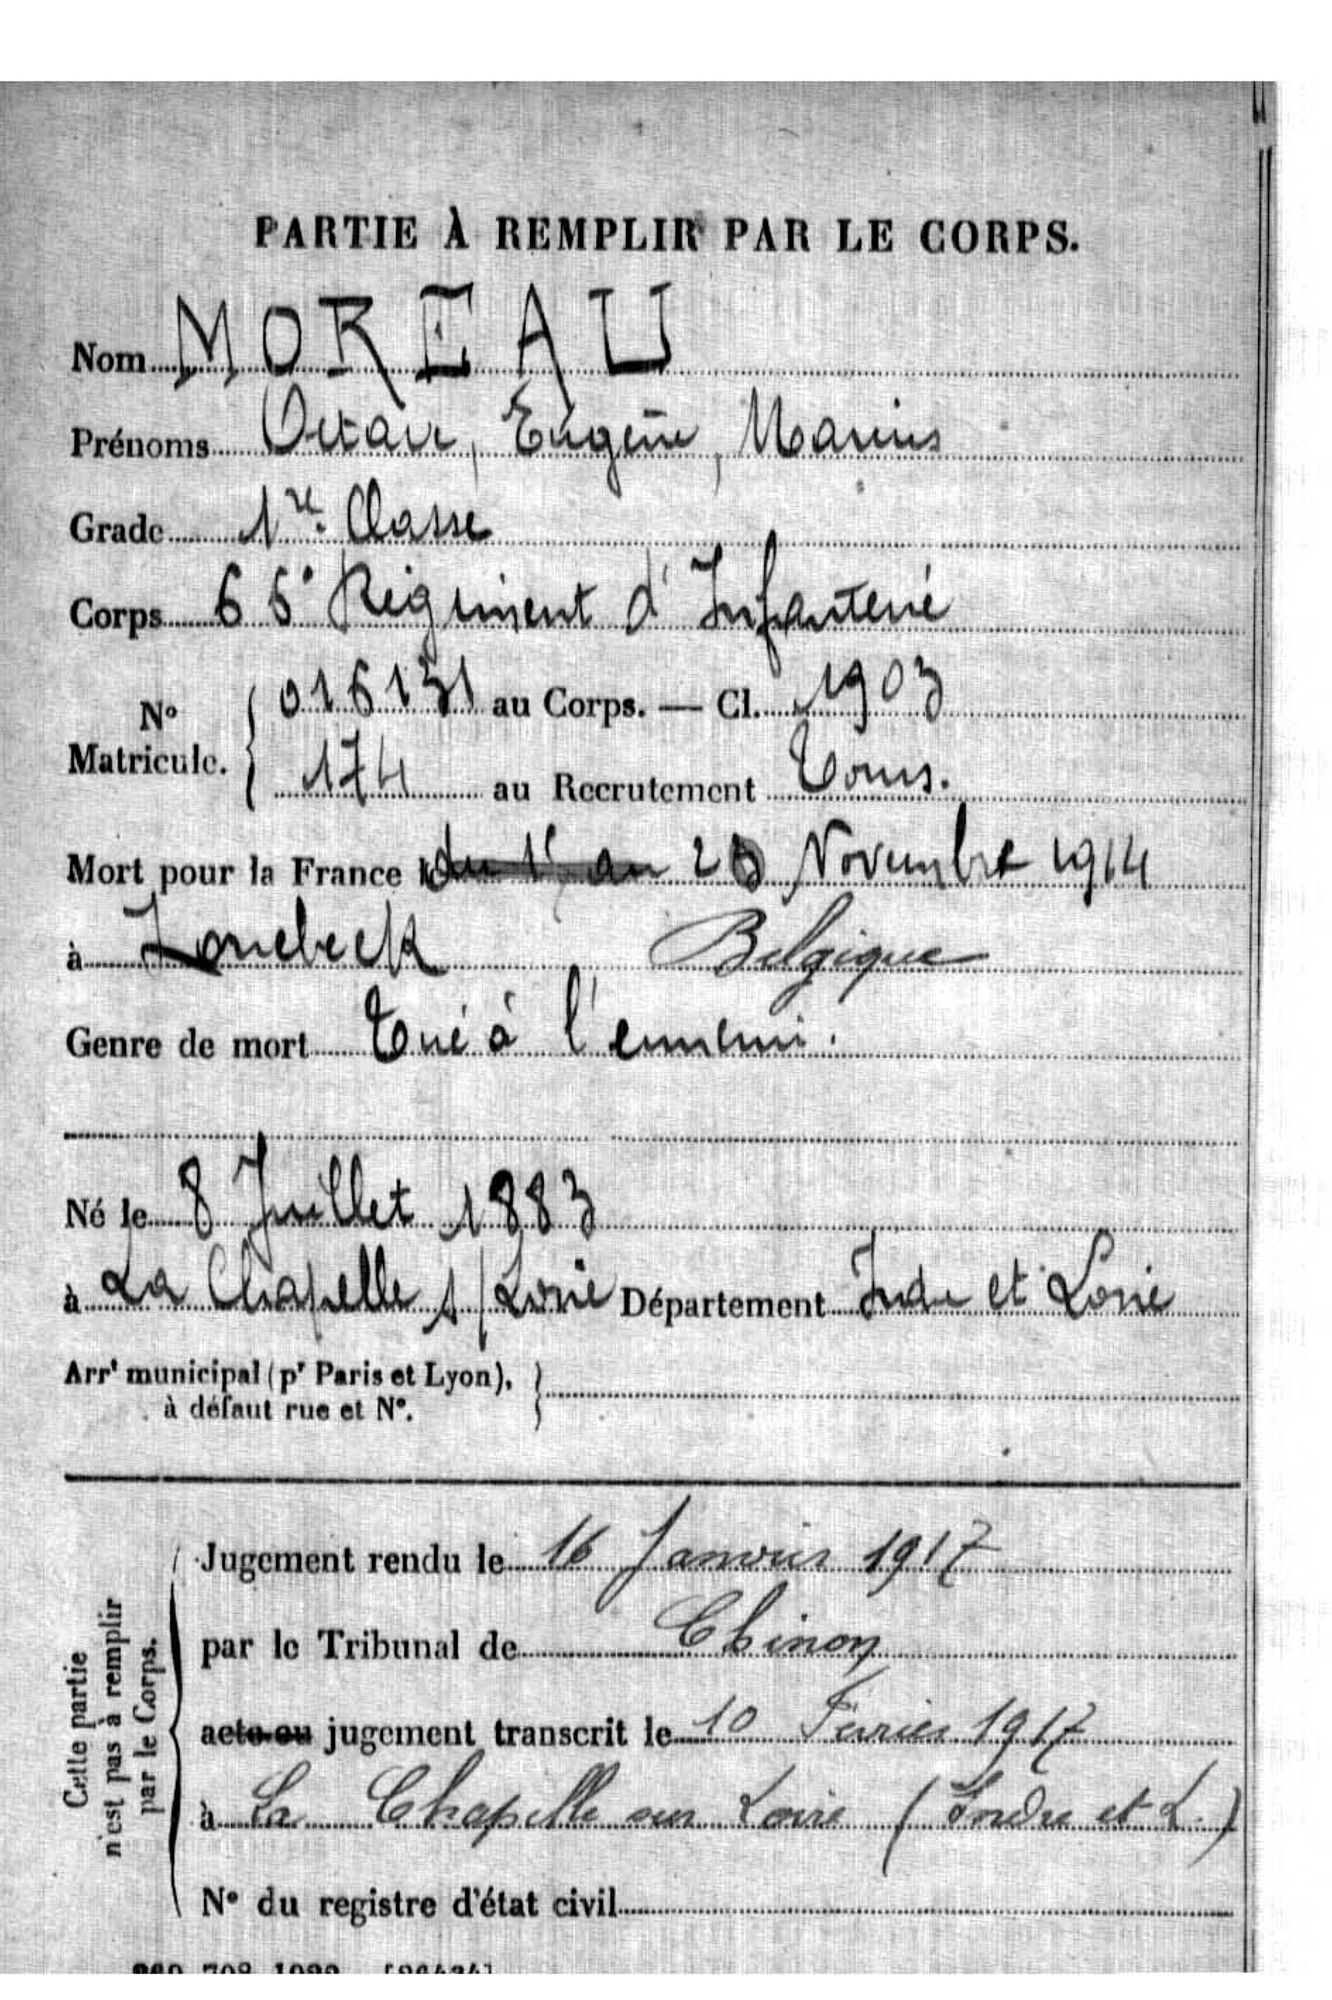 PARTIE À REMPLIR PAR LE CORPS.
Nom MOREAU
Prénoms Octave, Eugène, Marius
Grade 1re Classe
Corps 66e Régiment d'Infanterie
No Matricule. 016131 au Corps. — Cl. 1903
174 au Recrutement Tours.
Mort pour la France le du 1er au 20 Novembre 1914
à Zonebeck Belgique
Genre de mort Tué à l'ennemi.
Né le 8 Juillet 1883
à La Chapelle s/Loire Département Indre et Loire
Arrt municipal (pr Paris et Lyon),
à défaut rue et No.
Cette partie
n'est pas à remplir
par le Corps.
Jugement rendu le 16 Janvier 1917
par le Tribunal de Chinon
acte ou jugement transcrit le 10 Février 1917
à La Chapelle sur Loire (Indre et L.)
No du registre d'état civil